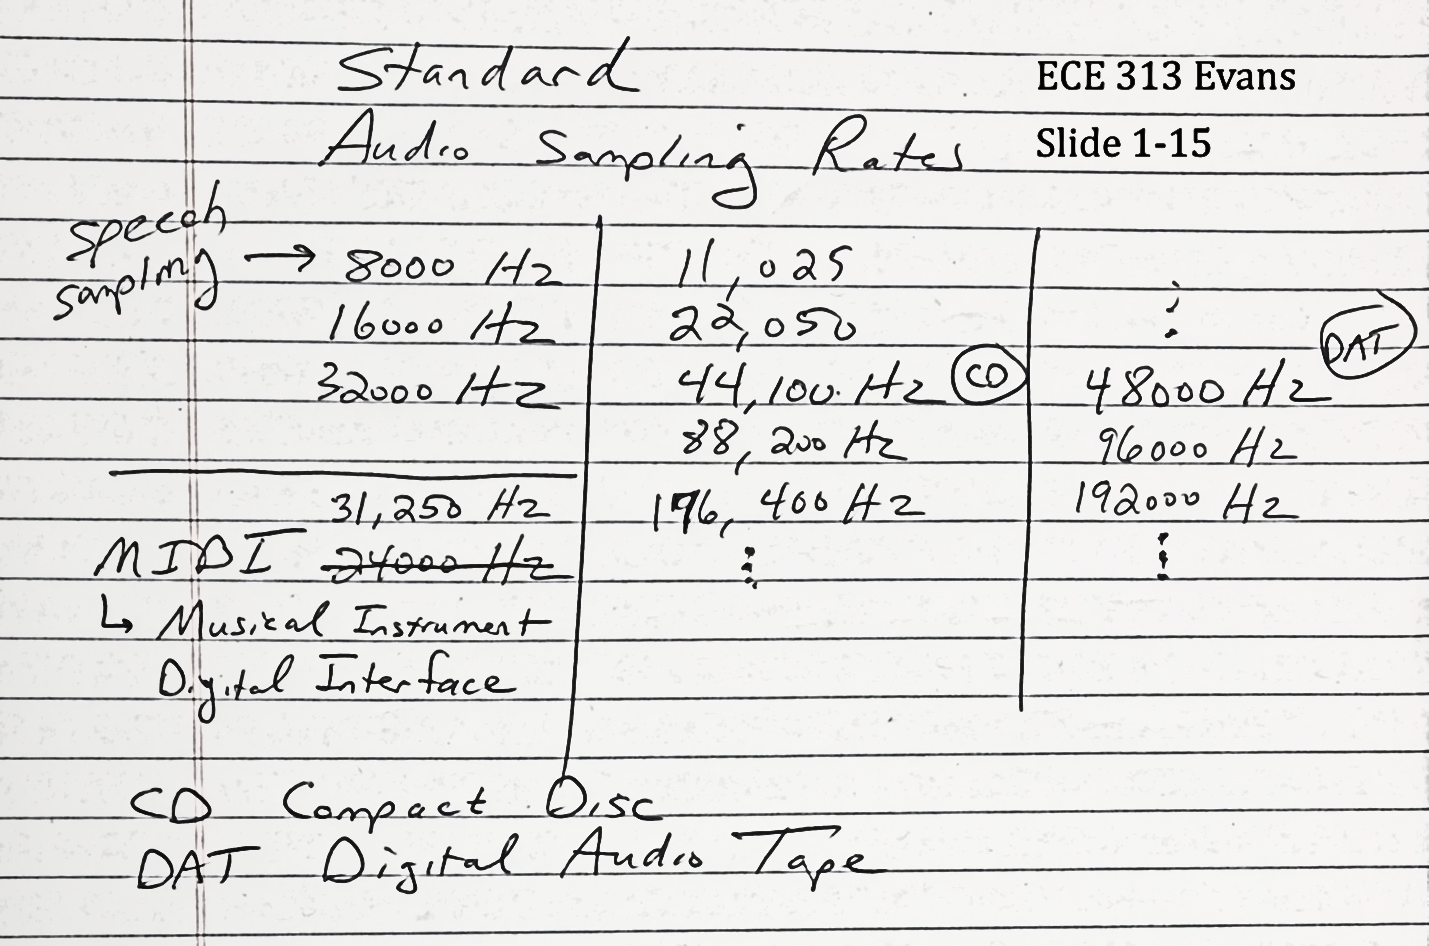 Standard
ECE 313 Evans
Audio Sampling Rates
Slide 1-15
speech
sampling → 8000 Hz
16000 Hz
32000 Hz
31,250 Hz
MIDI 24000 Hz
↳ Musical Instrument
Digital Interface
11,025
22,050
44,100 Hz CD
88,200 Hz
176,400 Hz
⋮
⋮
DAT
48000 Hz
96000 Hz
192000 Hz
⋮
CD Compact Disc
DAT Digital Audio Tape